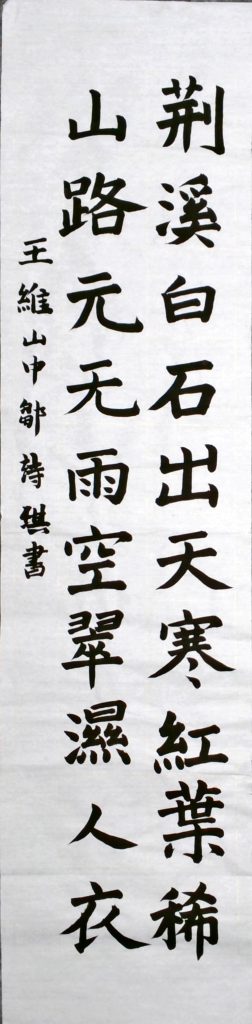 荆溪白石出天寒紅葉稀
山路元无雨空翠濕人衣
王維山中鄒詩琪書